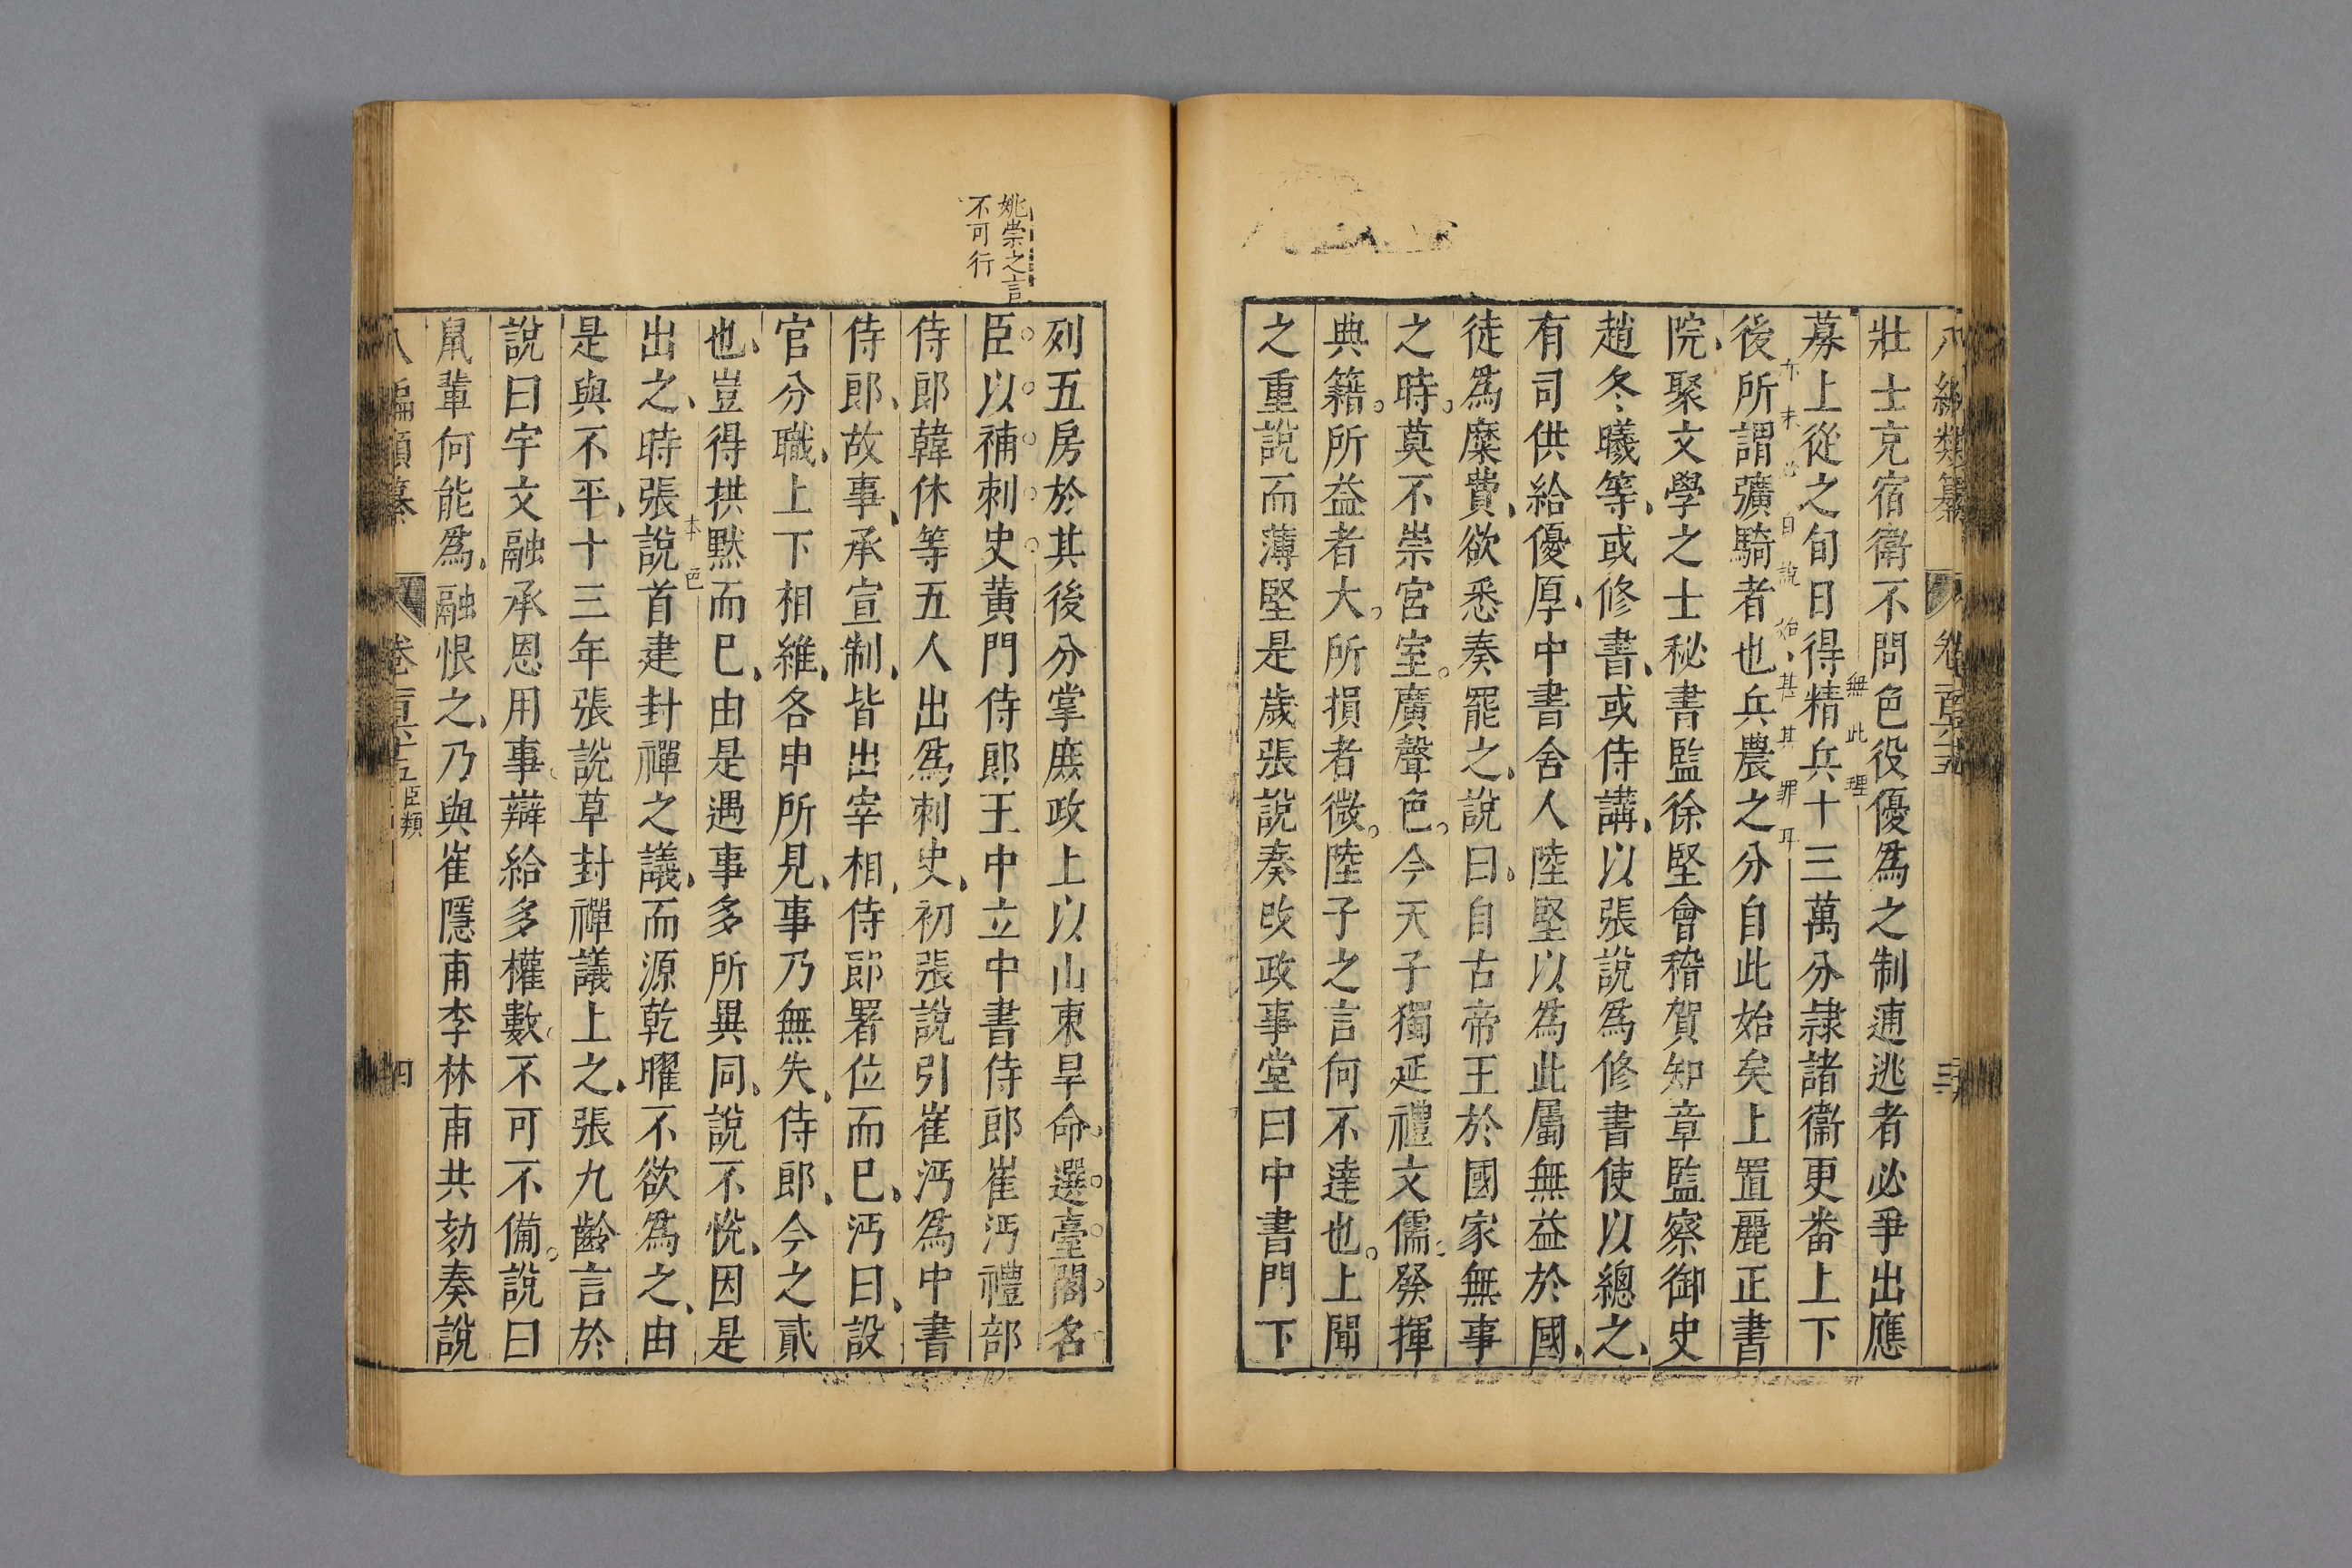 八編類纂 卷
壯士充宿衛不問色役優爲之制逋逃者必爭出應
無此理
募上從之旬日得精兵十三萬分隸諸衛更番上下
亦未必自說始甚其罪耳
後所謂彍騎者也兵農之分自此始矣上置麗正書
院聚文學之士秘書監徐堅會稽賀知章監察御史
趙冬曦等或修書或侍講以張說爲修書使以總之
有司供給優厚中書舍人陸堅以爲此屬無益於國
徒爲糜費欲悉奏罷之說曰自古帝王於國家無事
之時莫不崇宮室廣聲色今天子獨延禮文儒發揮
典籍所益者大所損者微陸子之言何不達也上聞
之重說而薄堅是歲張說奏改政事堂曰中書門下
列五房於其後分掌庶政上以山東旱命選臺閣名
姚崇之言
不可行
臣以補刺史黃門侍郎王中立中書侍郎崔沔禮部
侍郎韓休等五人出爲刺史初張說引崔沔爲中書
侍郎故事承宣制皆出宰相侍郎署位而已沔曰設
官分職上下相維各申所見事乃無失侍郎今之貳
也豈得拱默而已由是遇事多所異同說不悅因是
本色
出之時張說首建封禪之議而源乾曜不欲爲之由
是與不平十三年張說草封禪議上之張九齡言於
說曰宇文融承恩用事辯給多權數不可不備說曰
鼠輩何能爲融恨之乃與崔隱甫李林甫共劾奏說
八編類纂 卷 臣類 四